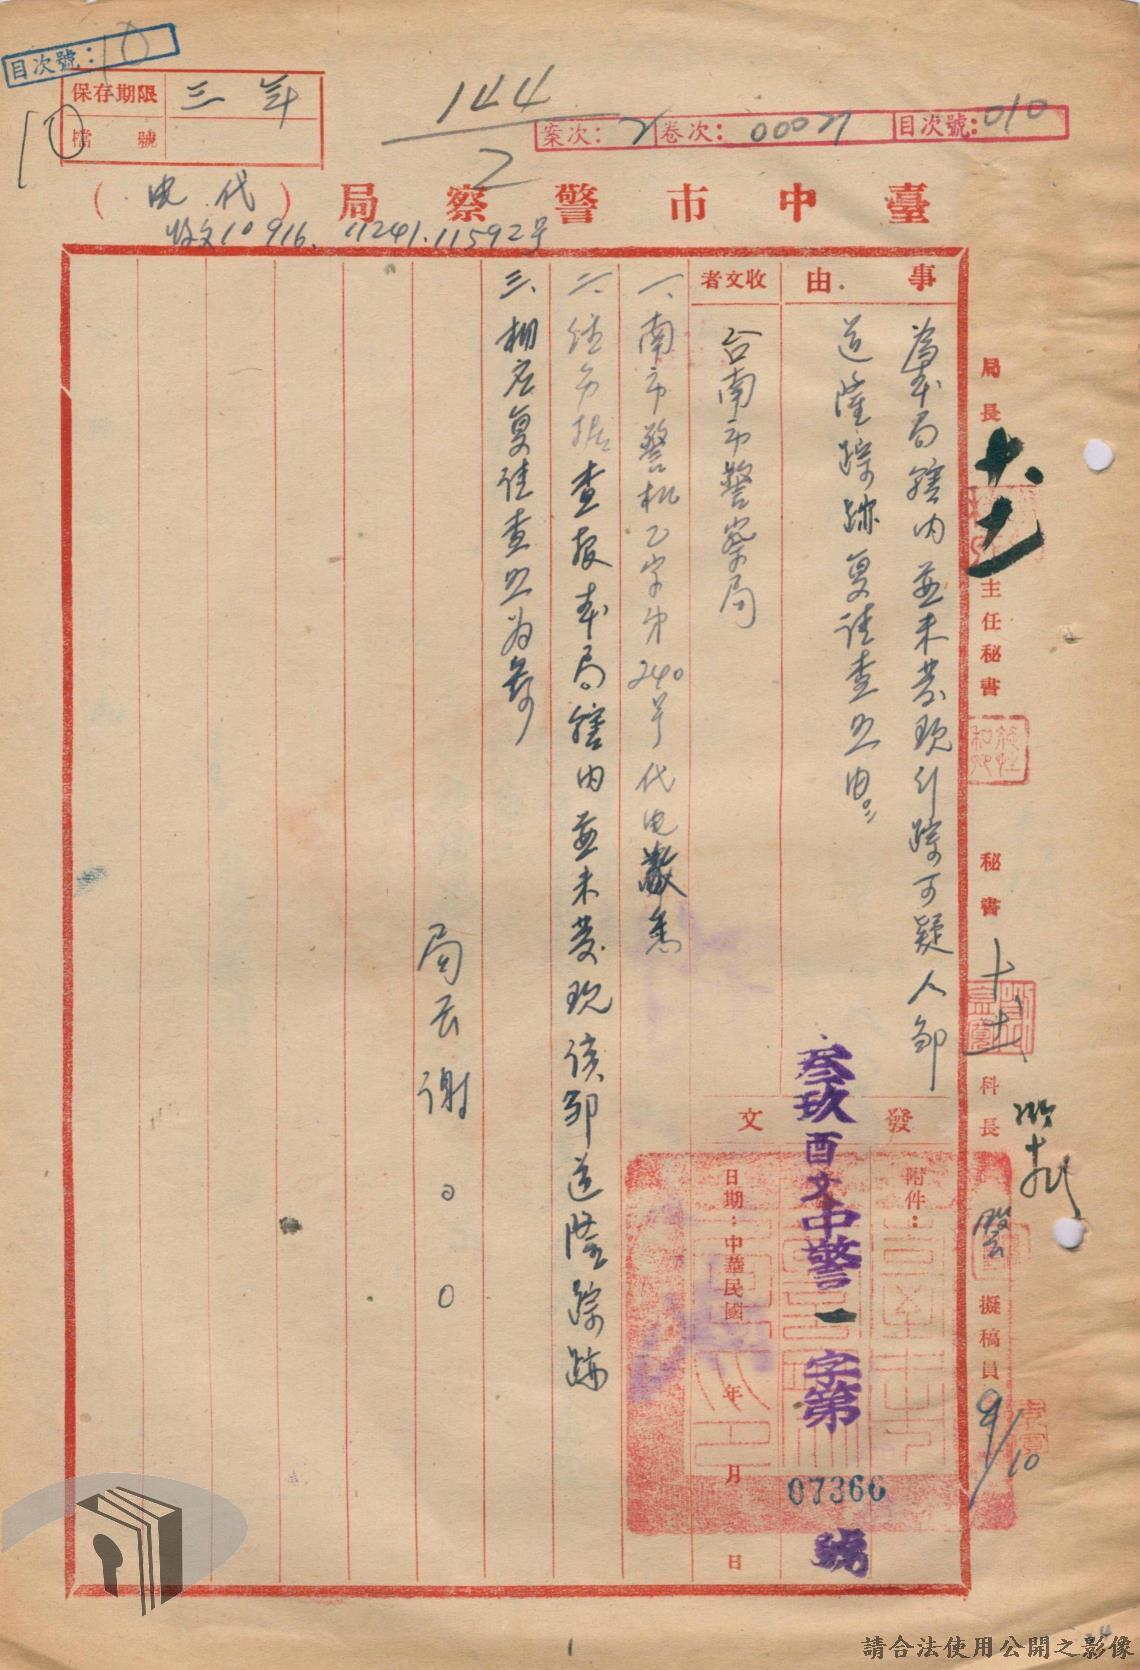 目次號：10
保存期限 三年
檔號
10
144
2
案次：2 卷次：00021 目次號：010
臺中市警察局（代電）
收文10916. 11241. 11592号
事由
為本局轄内並未發現行踪可疑人鄒
道隆踪跡复請查照由
收文者
台南市警察局
發文
附件：
叁玖酉文中警一字第07366號
日期：中華民國 年 月 日
一、南市警机乙字第240号代电敬悉
二、經飭據查报本局轄内並未發現该鄒道隆踪跡
三、相应复请查照为荷
局長謝○○
局長
主任秘書
秘書
科長
擬稿員
9/10
請合法使用公開之影像